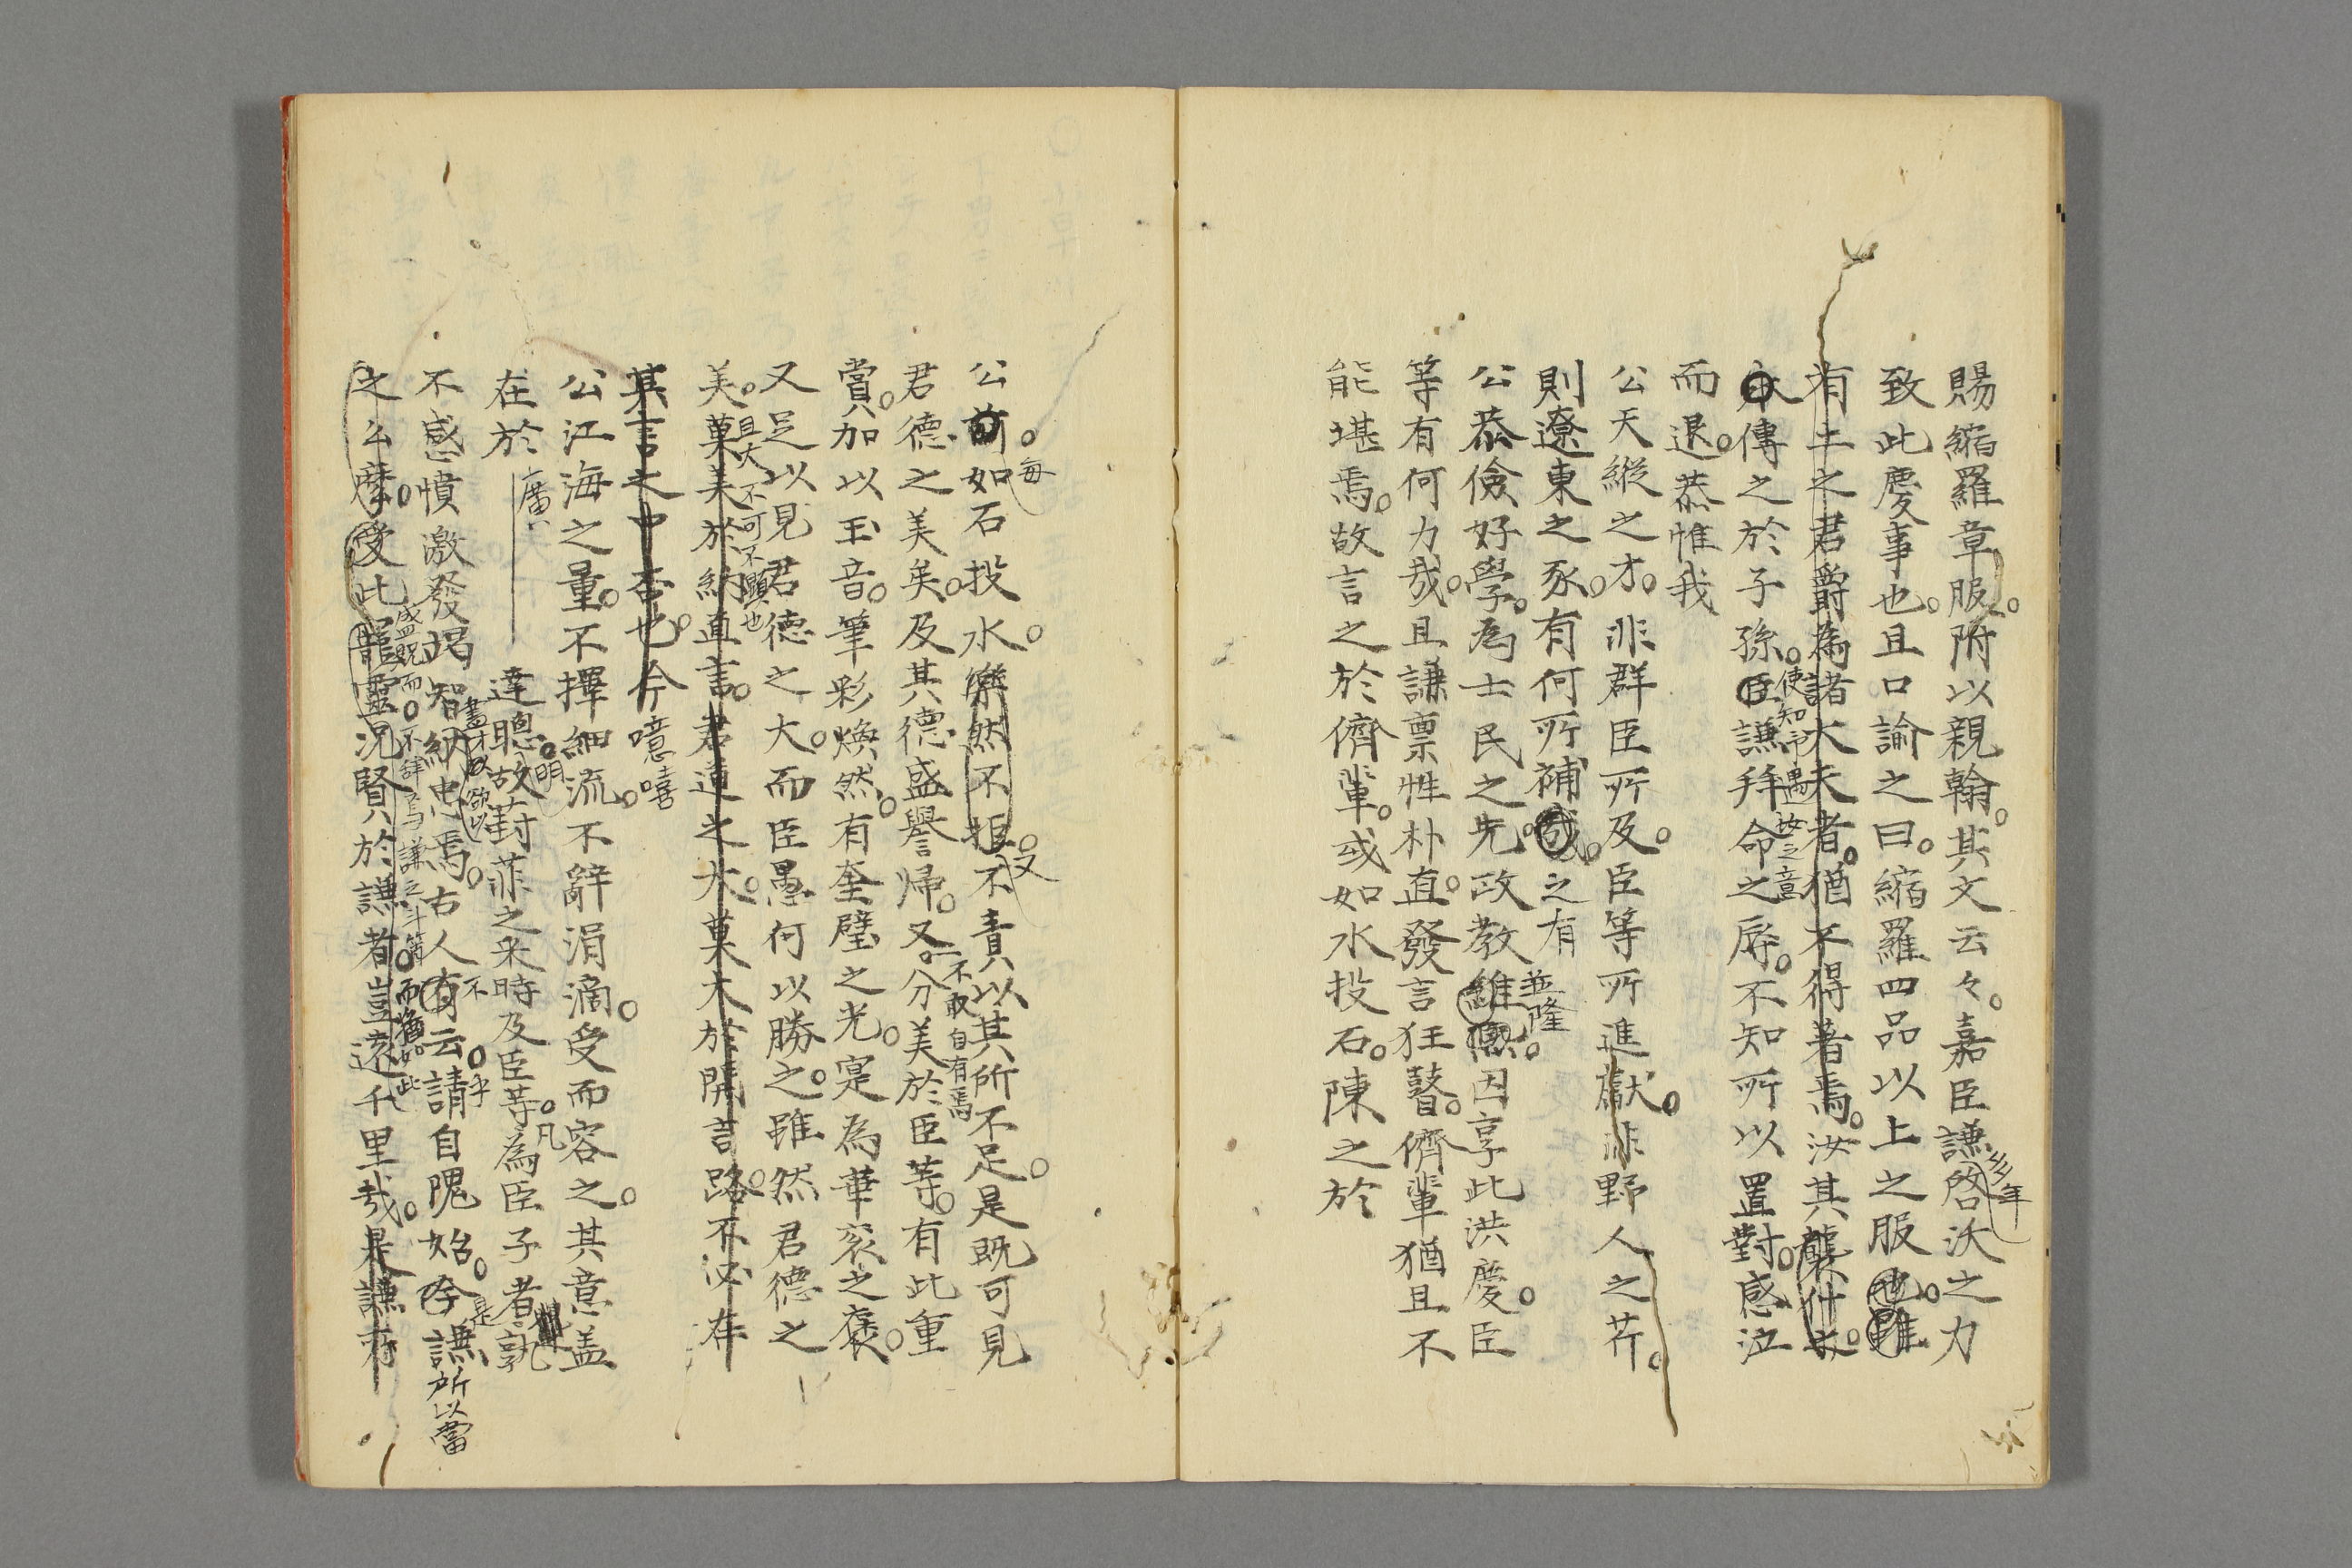 賜縮羅章服。附以親翰。其文云々。嘉臣謙啓沃之力
年
致此慶事也。且口諭之曰。縮羅四品以上之服也。雖
有土之君爵為諸大夫者。猶不得著焉。汝其襲什之。
傳之於子孫。臣謙拜命之辱。不知所以置對。感泣
使知所遇汝之意
而退。恭惟我
公天縱之才。非群臣所及。臣等所進獻。非野人之芹。
則遼東之豕。有何所補哉。之有
公恭儉好學。為士民之先。政教維熙。因享此洪慶。臣
並隆
等有何力哉。且謙稟性朴直。發言狂瞽。儕輩猶且不
能堪焉。故言之於儕輩。或如水投石。陳之於
公前如石投水。樂然不拒。不責以其所不足。是既可見
每
又
君德之美矣。及其德盛譽歸。又分美於臣等。有此重
不敢自有焉
賞。加以玉音。筆彩煥然。有奎璧之光。寔為華袞之褒。
又足以見君德之大。而臣愚何以勝之。雖然君德之
美。莫美於納直言。君道之大。莫大於開言路。不必存
且大不可不顯也
其言之中否也。今噫嘻
公江海之量。不擇細流。不辭涓滴。受而容之。其意蓋
在於
廣
達聰。故葑菲之采時及臣等。為臣子者。孰
明
凡
不感憤激發竭智納忠焉。古人有云請自隗始。今謙所以當
不
乎
是
之么麼。受此寵靈。況賢於謙者。豈遠千里哉。是謙所
盛貺而不辭焉謙之斗筲而猶如此